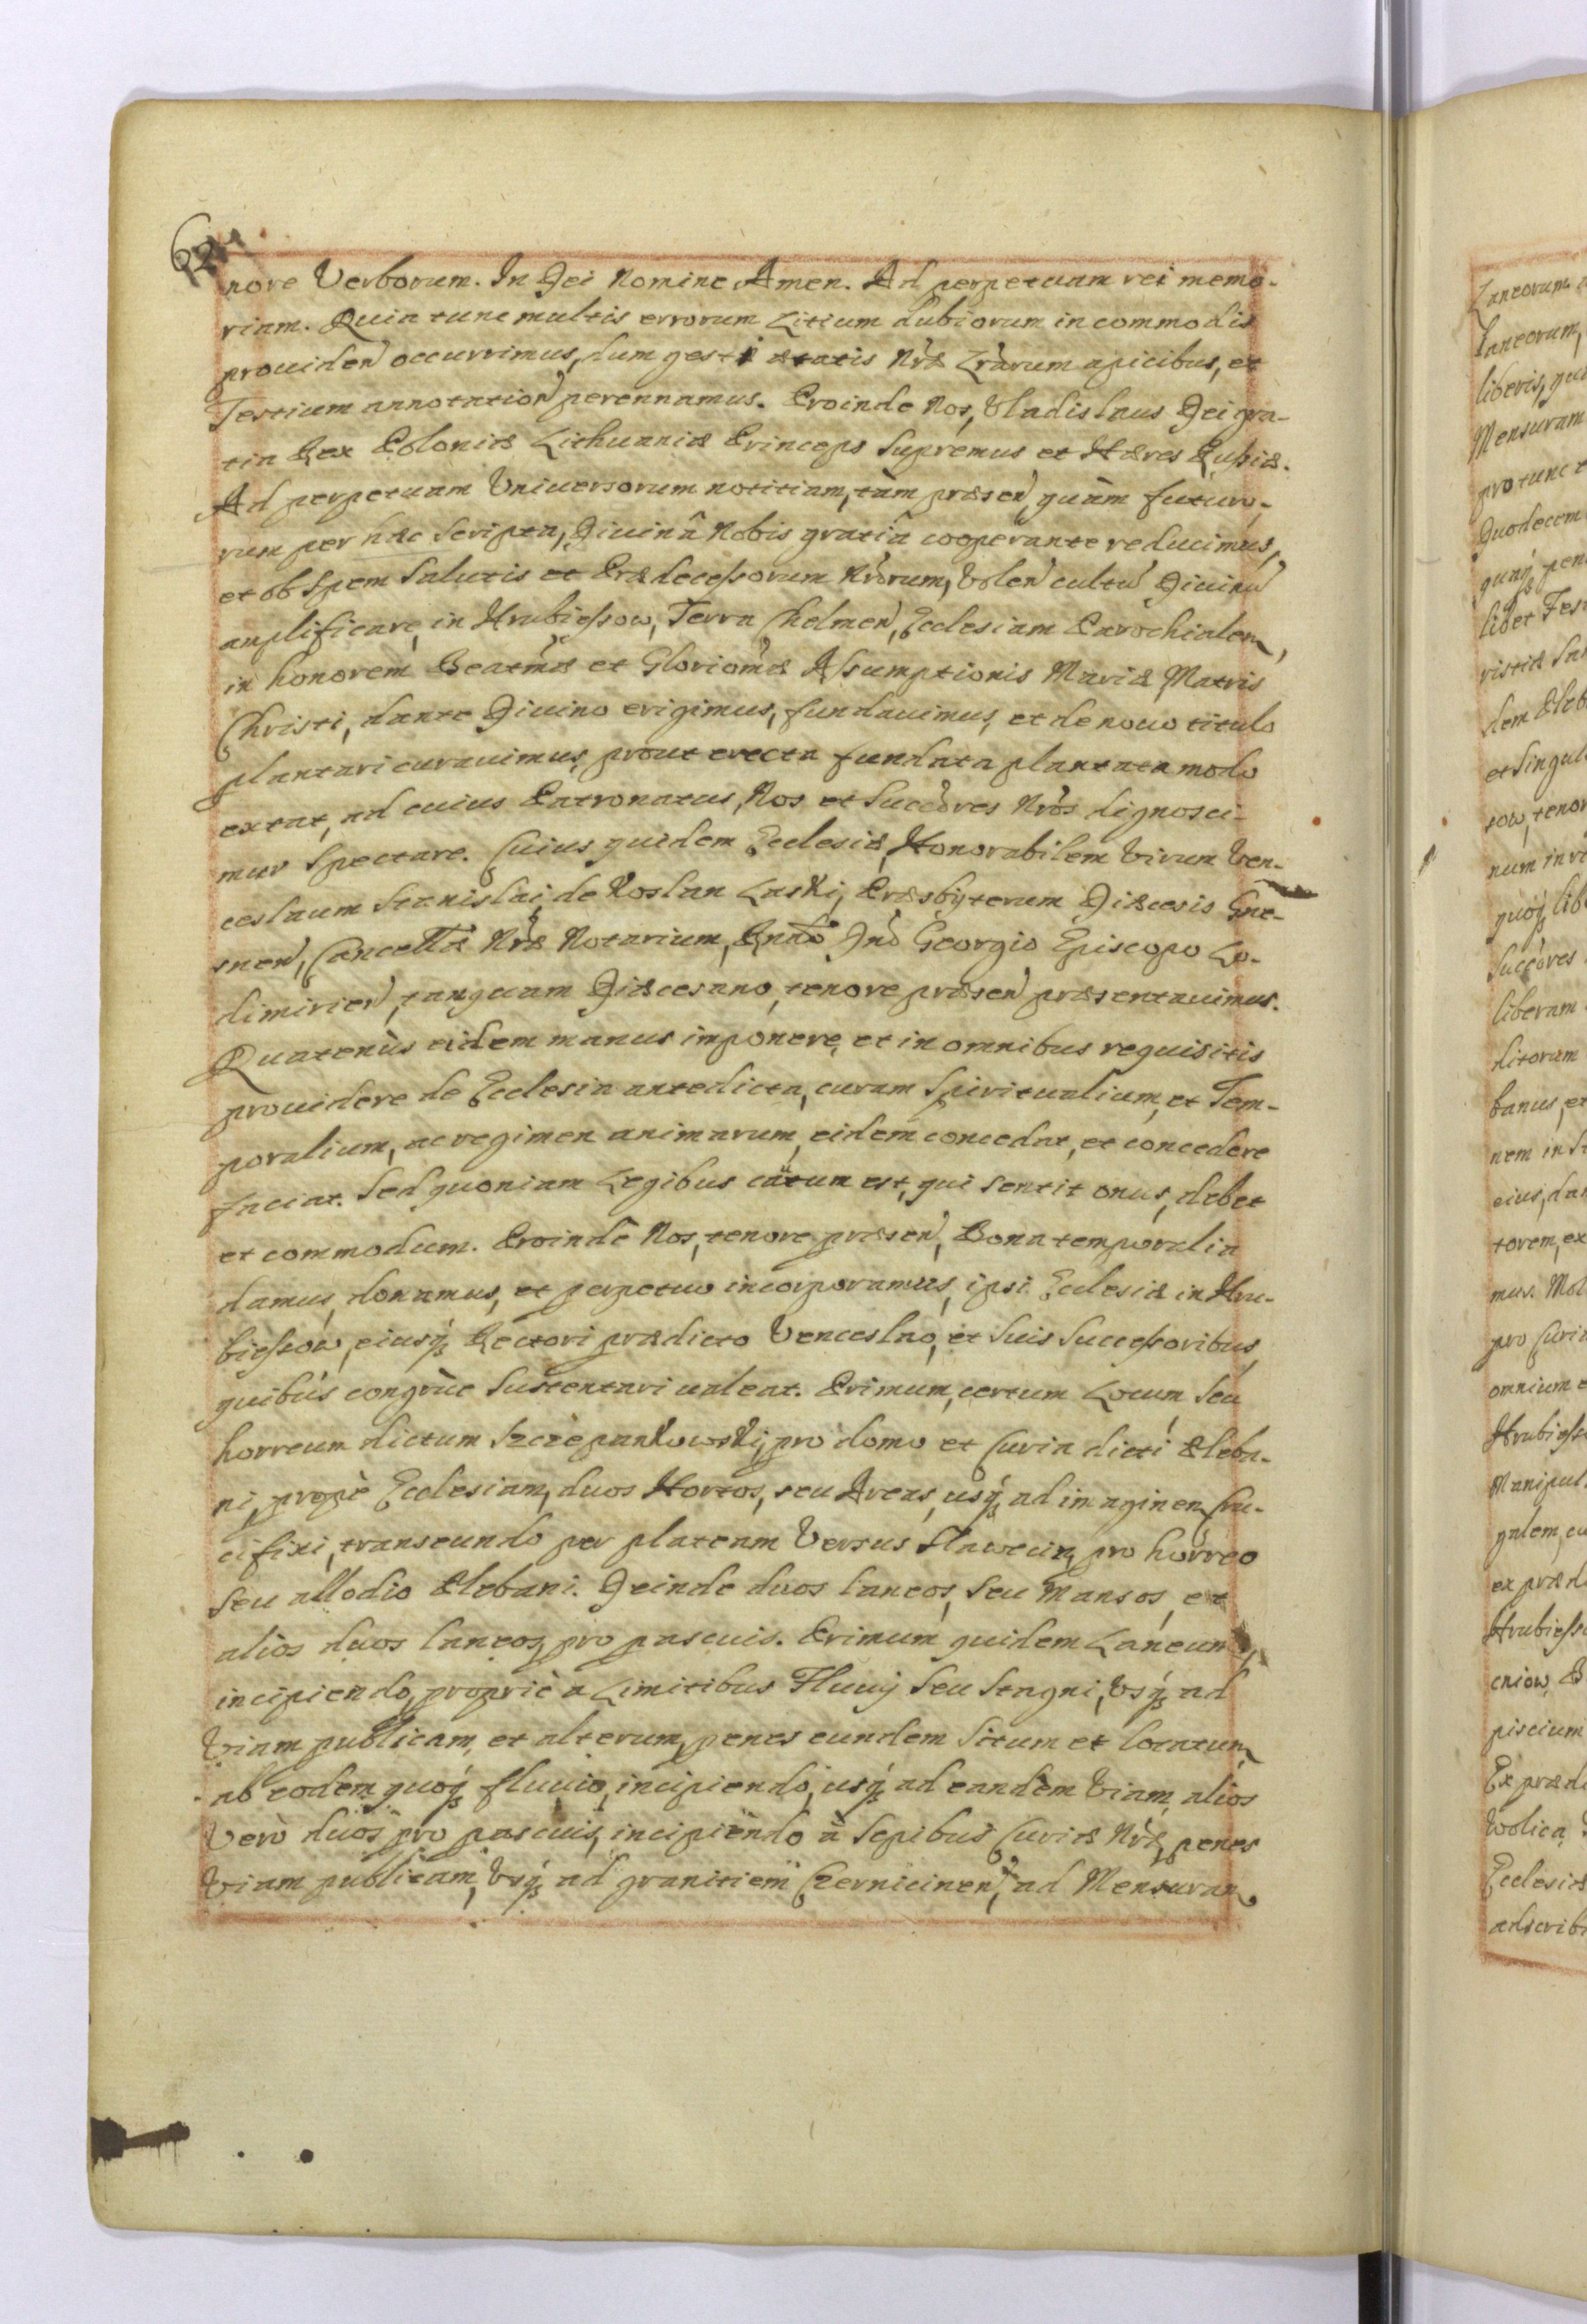 62
nore Verborum. In Dei Nomine Amen. Ad perpetuam rei memo-
riam. Quia tunc multis errorum Litium dubiorum incommodis
prouiden occurrimus, dum gesta ætatis Nræ Lrarum apicibus, et
Testium annotation perennamus. Proinde Nos, Vladislaus Dei gra-
tia Rex Poloniæ Lithuaniæ Princeps Supremus et Hæres Russiæ.
Ad perpetuam Vniuersorum notitiam, tàm præsen, quàm futuro-
rum per hæc Scripta, Diuinâ Nobis gratiâ cooperante reducimus,
et ob Spem Salutis et Prædecessorum Nrorum, Volen cultu Diuinu
amplificare, in Hrubiessow, Terra Chelmen, Ecclesiam Parochialem,
in honorem Beatmæ et Gloriomæ Assumptionis Mariæ Matris
Christi, dante Diuino erigimus, fundauimus, et de nouo titulo
plantari curauimus, prout erecta fundata plantata modo
extat, ad cuius Patronatus, Nos et Succores Nros dignosci-
mur Spectare. Cuius quidem Ecclesiæ, Honorabilem Virum Ven-
ceslaum Stanislai, de Koslan Laski, Præsbyterum Diæcesis Gne-
snen, Cancellæ Nræ Notarium, Rndo Dno Georgio Episcopo Lo-
dimirien, tanquam Diæcesano, tenore præsen præsentauimus.
Quatenùs eidem manus imponere, et in omnibus requisitis
prouidere de Ecclesia antedicta, curam Spiritualium, et Tem-
poralium, ac regimen animarum, eidem concedat, et concedere
faciat. Sed quoniam Legibus cautum est, qui sentit onus, debet
et commodum. Proindè Nos, tenore præsen, Bona temporalia
damus, donamus, et perpetuo incorporamus, ipsi Ecclesiæ in Hru-
biessow, eiusq Rectori prædicto Venceslao, et Suis Successoribus,
quibus congrue Sustentari ualeat. Primum, certum Locum Seu
horreum dictum Szczepankowski, pro domo et Curia dicti Pleba-
ni, propè Ecclesiam, duos Hortos, seu Areas, usq ad imaginem Cru-
cifixi, transeundo per plateam Versus Slawecin, pro horreo
Seu allodio Plebani. Deinde duos laneos, Seu Mansos, et
alios duos laneos, pro pascuis. Primum quidem Laneum,
incipiendo, propriè a Limitibus Fluuij Seu Stagni, Vsq ad
Viam publicam, et alterum, penes eundem Situm et locatum,
ab eodem quoq fluuio, incipiendo, usq ad eandem Viam, alios
Verò duos pro pascuis, incipiendo à Sepibus Curiæ Nræ, penes
Viam publicam, Vsq ad granitiem Czernicinen, ad Mensuram